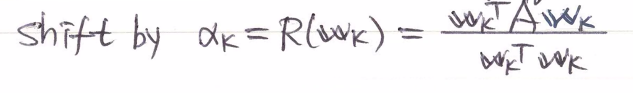 shift by αₖ = R(wₖ) = wₖᵀAwₖ / wₖᵀwₖ